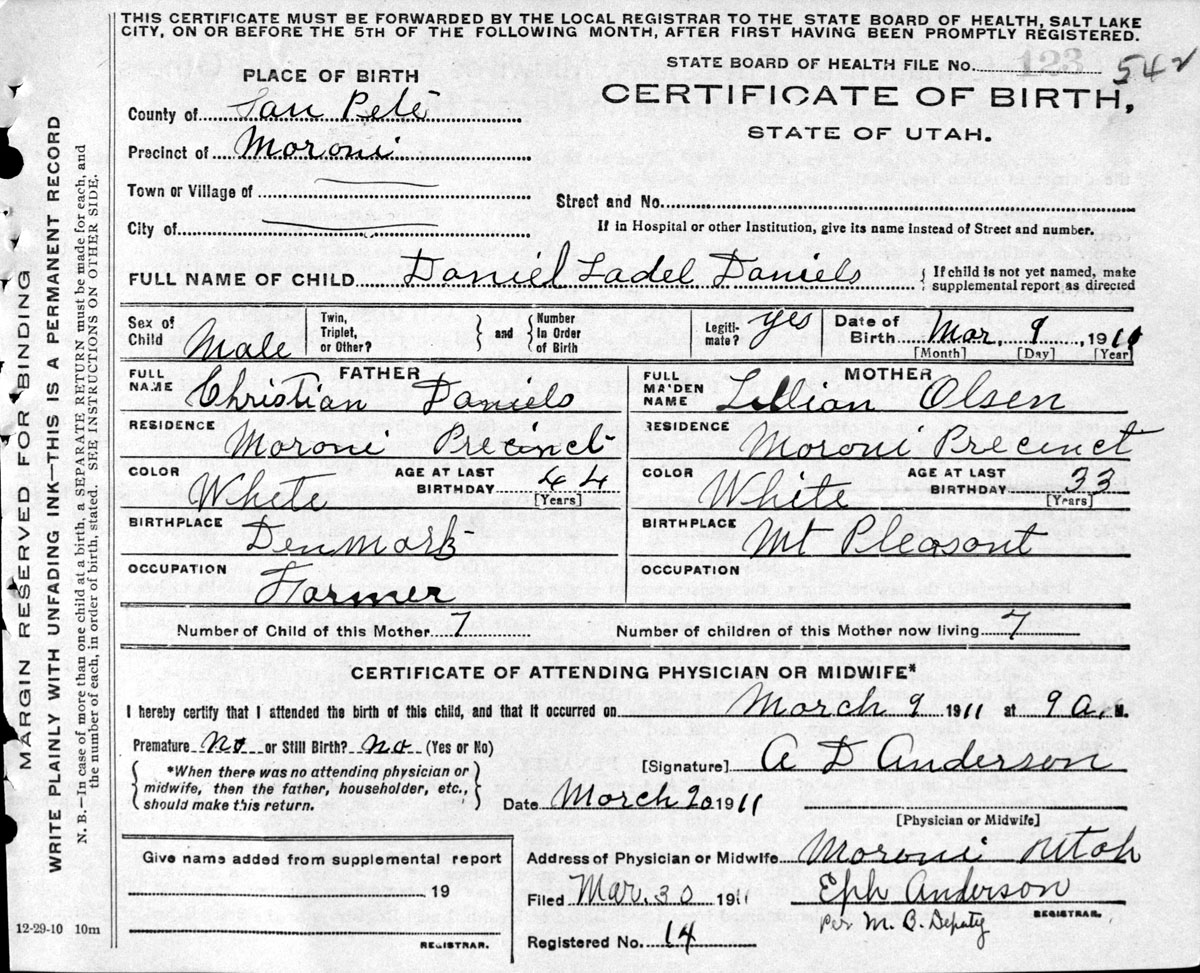 THIS CERTIFICATE MUST BE FORWARDED BY THE LOCAL REGISTRAR TO THE STATE BOARD OF HEALTH, SALT LAKE
CITY, ON OR BEFORE THE 5TH OF THE FOLLOWING MONTH, AFTER FIRST HAVING BEEN PROMPTLY REGISTERED.
STATE BOARD OF HEALTH FILE No. 123 542
PLACE OF BIRTH
CERTIFICATE OF BIRTH,
STATE OF UTAH.
County of San Pete
Precinct of Moroni
Town or Village of
Street and No.
City of
If in Hospital or other Institution, give its name instead of Street and number.
FULL NAME OF CHILD Daniel Ladel Daniels { If child is not yet named, make
supplemental report as directed
Sex of Child Male
Twin, Triplet, or Other? } and { Number in Order of Birth
Legiti-mate? yes
Date of Birth Mar. 9, 1911
[Month] [Day] [Year]
FATHER
FULL NAME Christian Daniels
RESIDENCE Moroni Precinct
COLOR White AGE AT LAST BIRTHDAY 44 [Years]
BIRTHPLACE Denmark
OCCUPATION Farmer
MOTHER
FULL MAIDEN NAME Lillian Olsen
RESIDENCE Moroni Precinct
COLOR White AGE AT LAST BIRTHDAY 33 [Years]
BIRTHPLACE Mt Pleasant
OCCUPATION
Number of Child of this Mother 7 Number of children of this Mother now living 7
CERTIFICATE OF ATTENDING PHYSICIAN OR MIDWIFE*
I hereby certify that I attended the birth of this child, and that it occurred on March 9 1911 at 9 a. M.
Premature No or Still Birth? No (Yes or No)
{ *When there was no attending physician or
midwife, then the father, householder, etc.,
should make this return. }
[Signature] A D Anderson
Date March 20 1911
[Physician or Midwife]
Give name added from supplemental report
19
REGISTRAR.
Address of Physician or Midwife Moroni Utah
Filed Mar. 30 1911 Eph Anderson
REGISTRAR.
Per M. B. Deputy
Registered No. 14
12-29-10 10m
MARGIN RESERVED FOR BINDING
WRITE PLAINLY WITH UNFADING INK—THIS IS A PERMANENT RECORD
N. B.—In case of more than one child at a birth, a SEPARATE RETURN must be made for each, and
the number of each, in order of birth, stated. SEE INSTRUCTIONS ON OTHER SIDE.